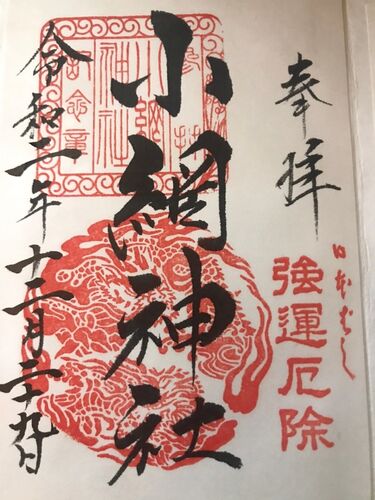 奉拝
日本ばし
強運厄除
小網神社
令和二年十二月二十九日